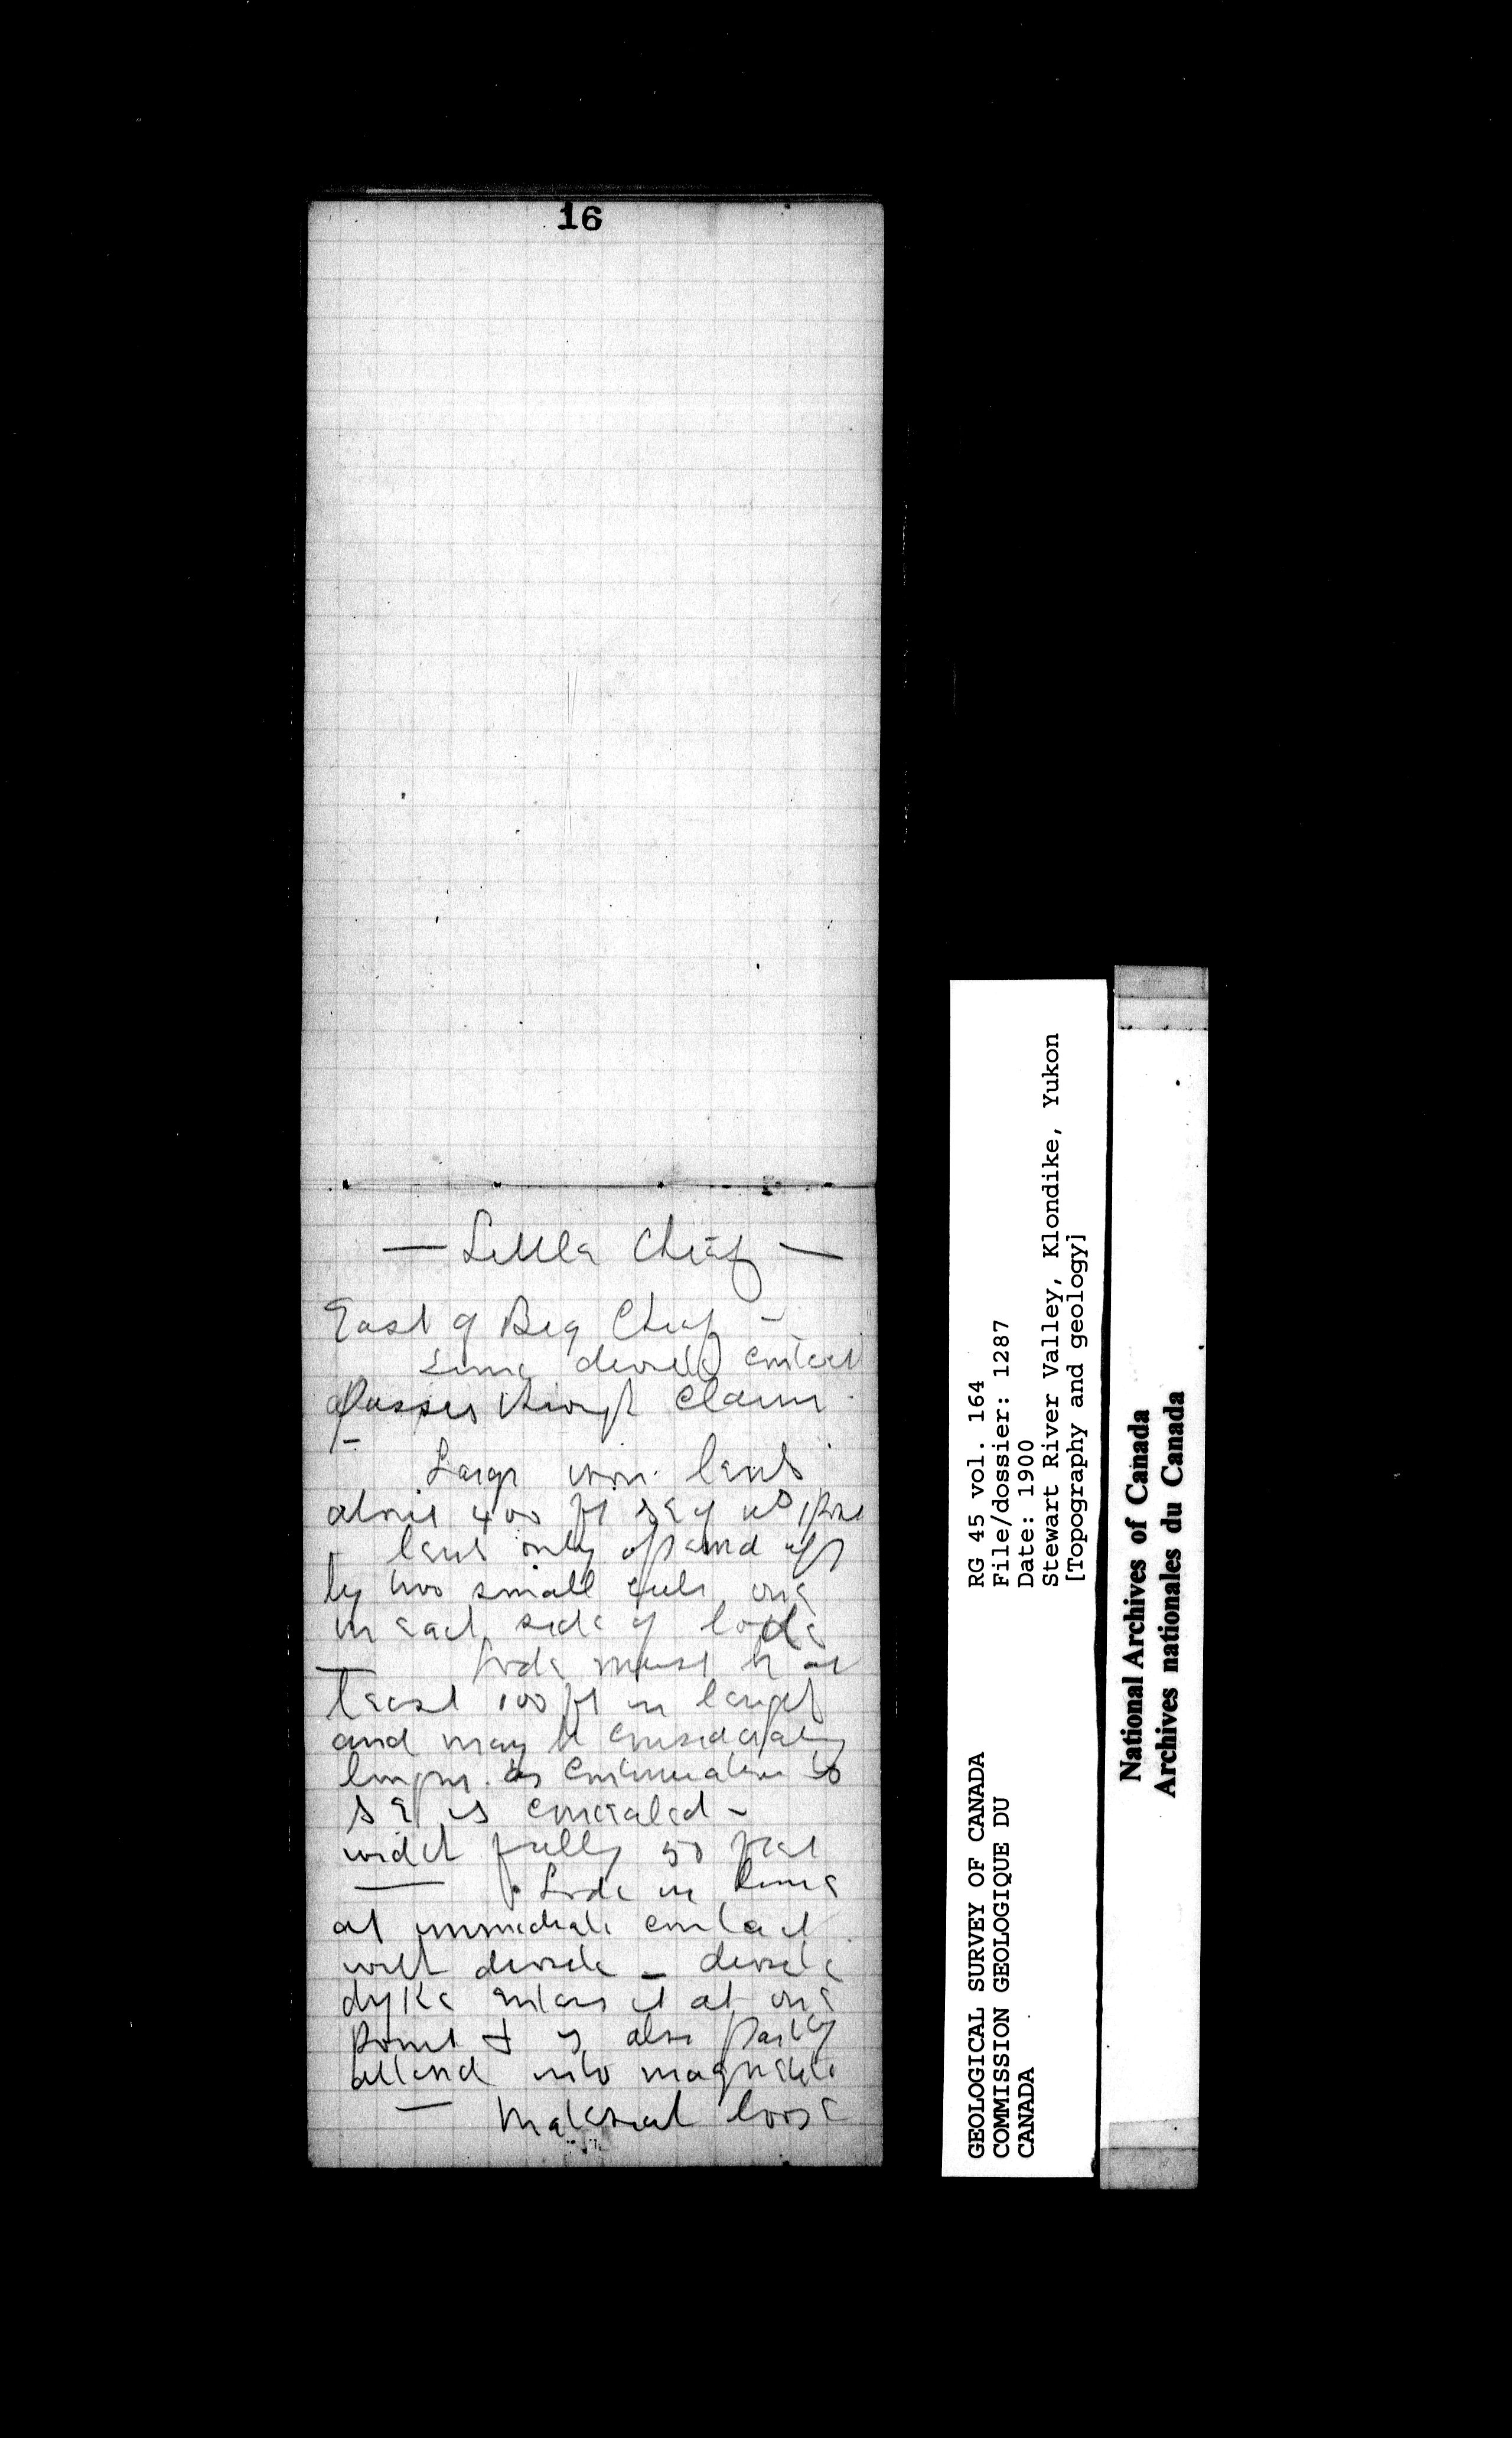 16
— Little Chief —
East of Big Chief –
Lime diorite contact
passes through claim
–
Large iron lens
about 400 ft SE of
lens only opened up
by two small cuts one
on each side of lode
— Lode must be at
least 100 ft in length
and may be considerably
longer as continuation to
SE is concealed –
width fully 50 feet
— Lode in lime
at immediate contact
with diorite – diorite
dyke enters it at one
point & is also partly
altered into magnetite
— Material loose
GEOLOGICAL SURVEY OF CANADA
COMMISSION GEOLOGIQUE DU
CANADA
RG 45 vol. 164
File/dossier: 1287
Date: 1900
Stewart River Valley, Klondike, Yukon
[Topography and geology]
National Archives of Canada
Archives nationales du Canada